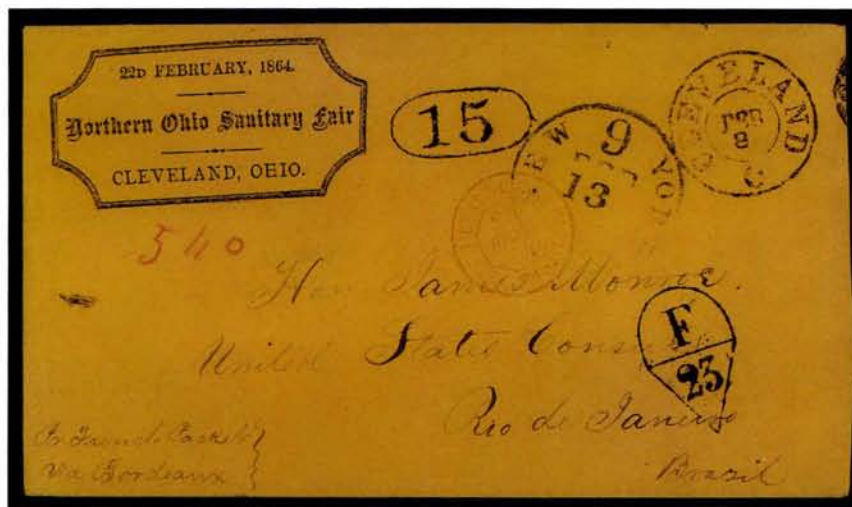 22D FEBRUARY, 1864.
Northern Ohio Sanitary Fair
CLEVELAND, OHIO.
15
NEW YOR
9
13
CLEVELAND
FEB
8
O
540
Hon James Monroe.
United States Consul
Rio de Janeiro
Brazil
F
23
Pr French Packet
via Bordeaux